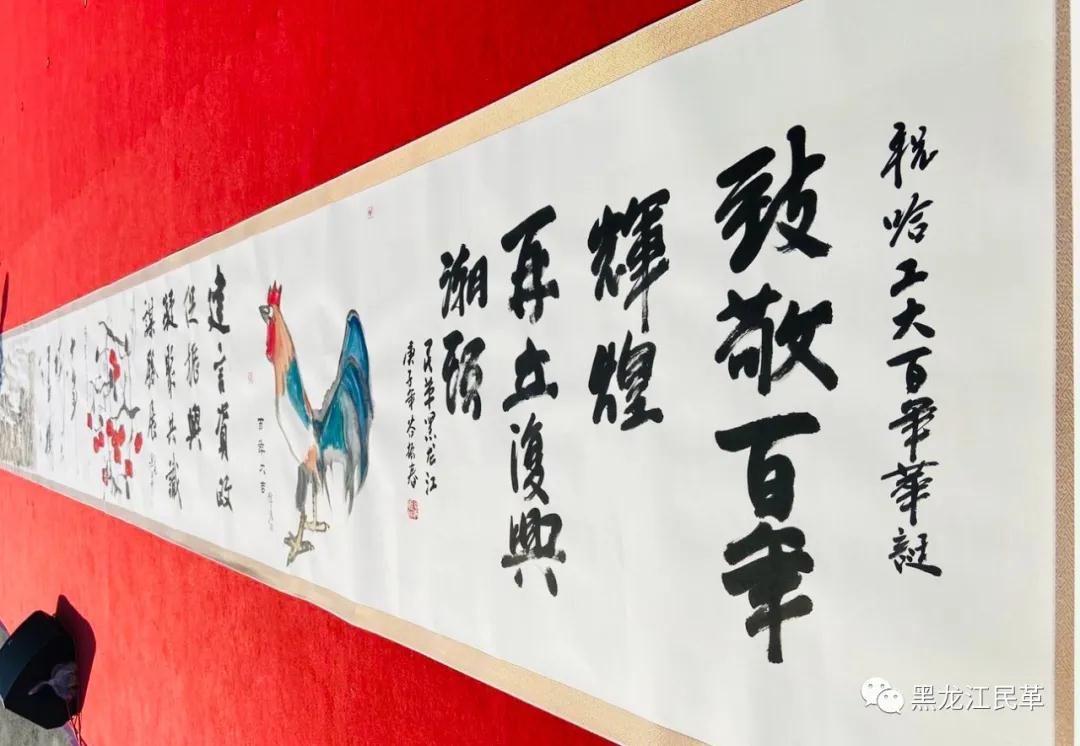 祝哈工大百年華誕
致敬百年
輝煌
再立復興
潮頭
民革黑龙江
庚子年
百年大吉
建言資政
促振興
凝聚共識
謀發展
黑龙江民革